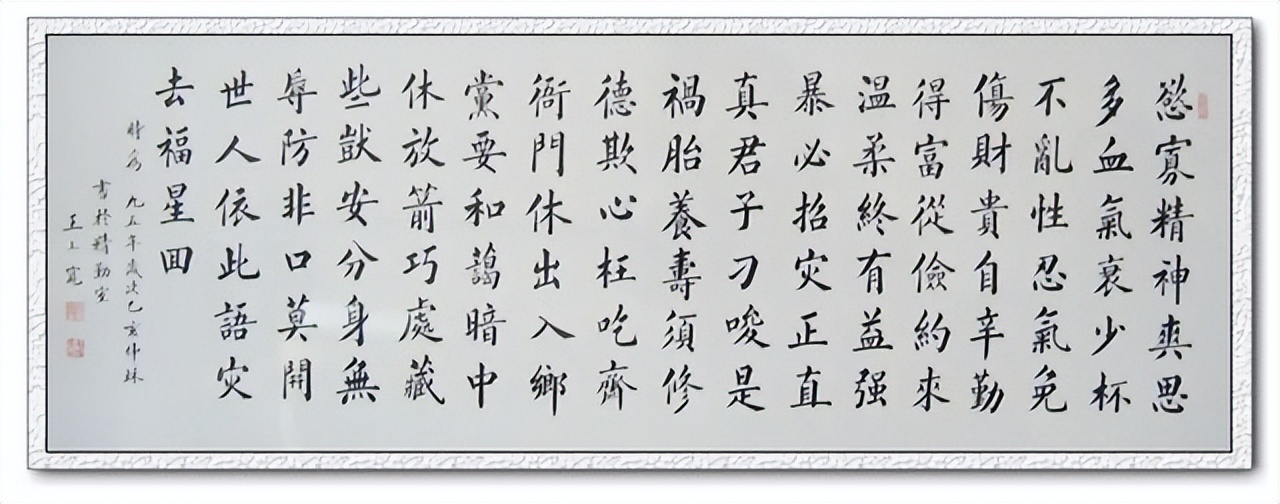 慾寡精神爽思
多血氣衰少杯
不亂性忍氣免
傷財貴自辛勤
得富從儉約來
温柔終有益强
暴必招灾正直
真君子刁唆是
禍胎養壽須修
德欺心枉吃齊
衙門休出入鄉
黨要和藹暗中
休放箭巧處藏
些獃安分身無
辱防非口莫開
世人依此語灾
去福星回
九五年歲次乙亥仲秋
書於精勤室